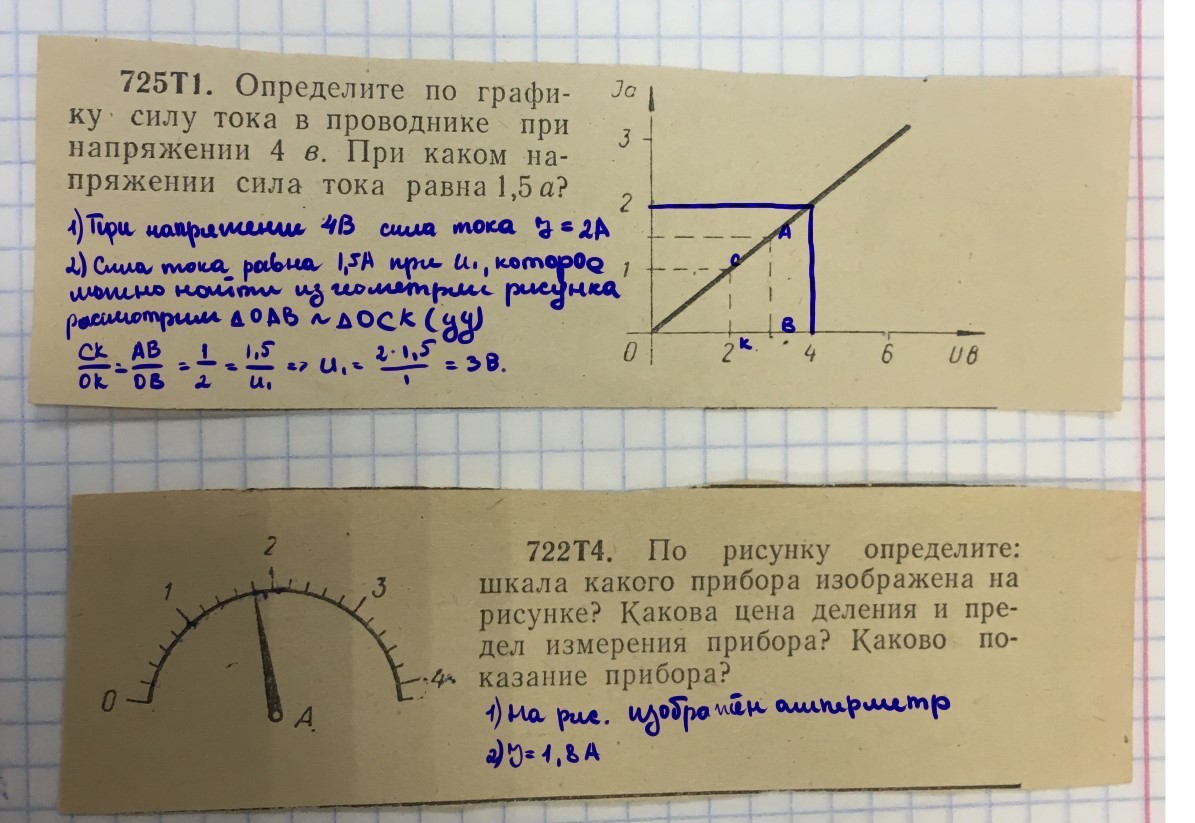 725Т1. Определите по графи-
ку силу тока в проводнике при
напряжении 4 в. При каком на-
пряжении сила тока равна 1,5 а?
1) При напряжении 4В сила тока J = 2А
2) Сила тока равна 1,5А при U₁, которое
можно найти из геометрии рисунка
рассмотрим ΔOAB ~ ΔOCK (уу)
CK/OK = AB/OB = 1/2 = 1,5/U₁ => U₁ = 2·1,5/1 = 3 В.
Ja
3
2
A
C
1
B
0 2 К. 4 6 UB
2
1 3
0 4
A
722Т4. По рисунку определите:
шкала какого прибора изображена на
рисунке? Какова цена деления и пре-
дел измерения прибора? Каково по-
казание прибора?
1) На рис. изображён амперметр
2) J = 1,8 А